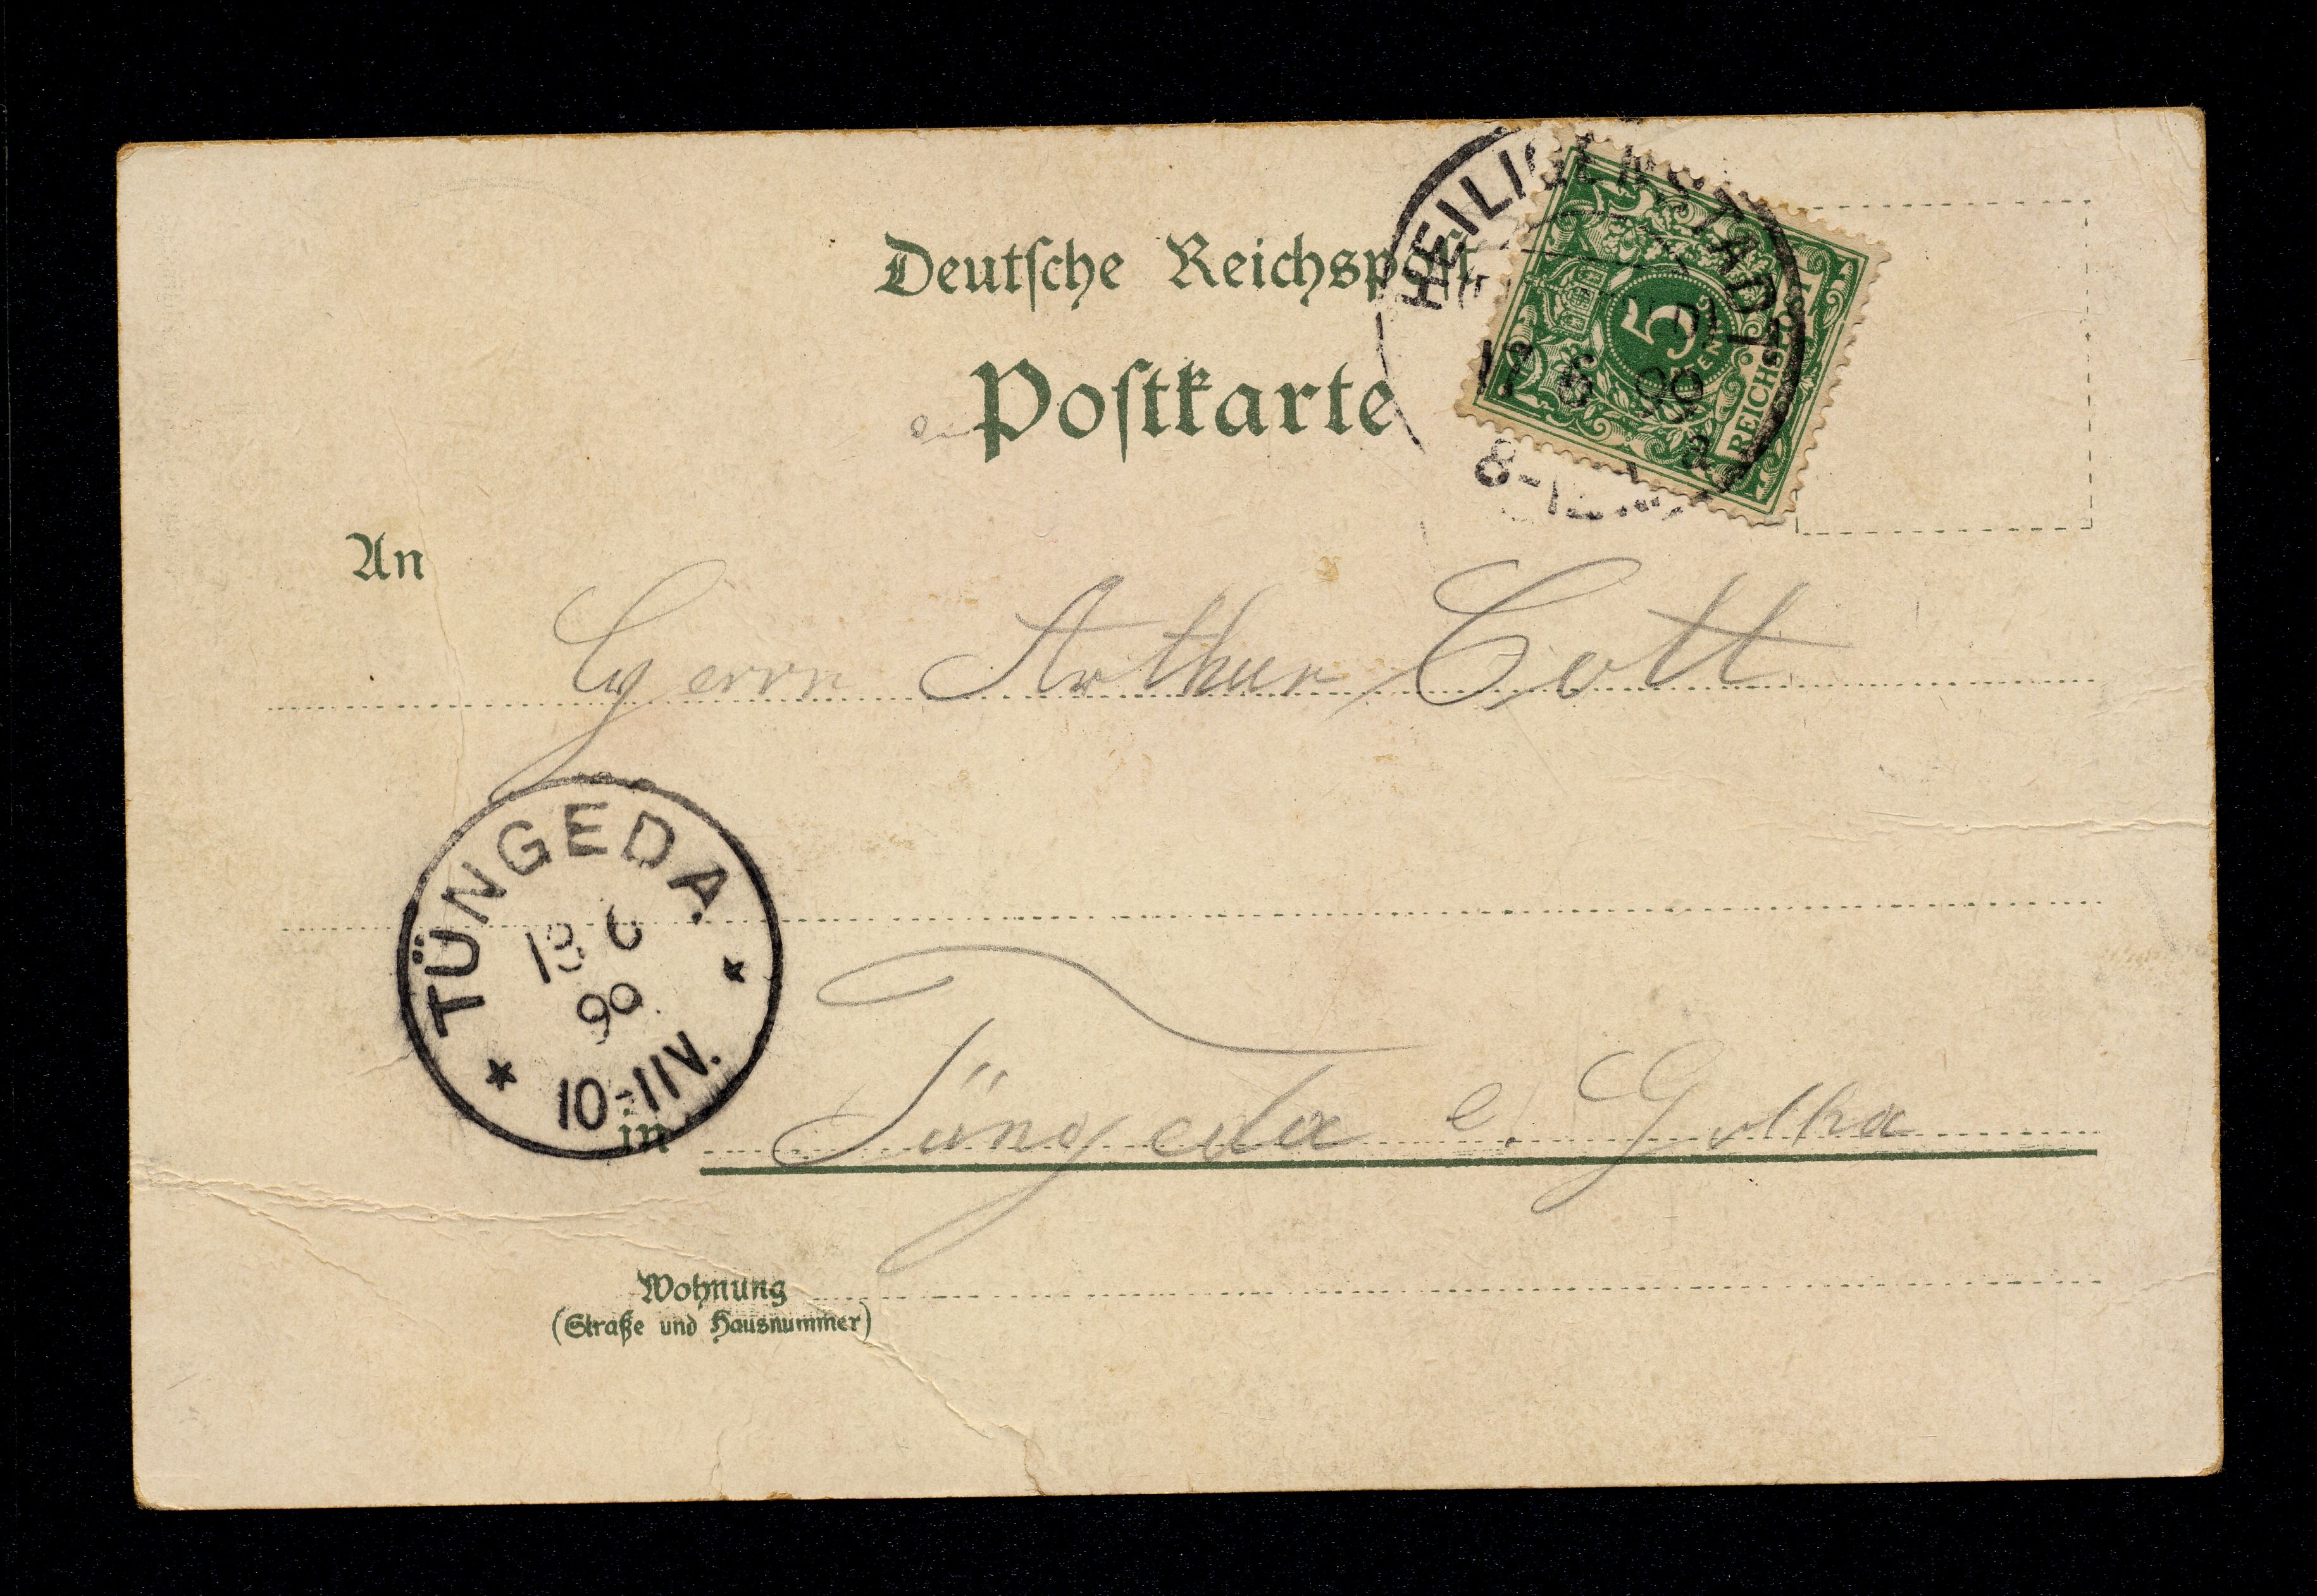 Deutsche Reichspost
Postkarte
HEILIGENSTADT
17 6 99
8-
5
PFENNIG
REICHSPOST
An
Herrn Arthur Cott
TÜNGEDA
18 6
99
10-11V.
in Tüngeda b. Gotha
Wohnung
(Straße und Hausnummer)